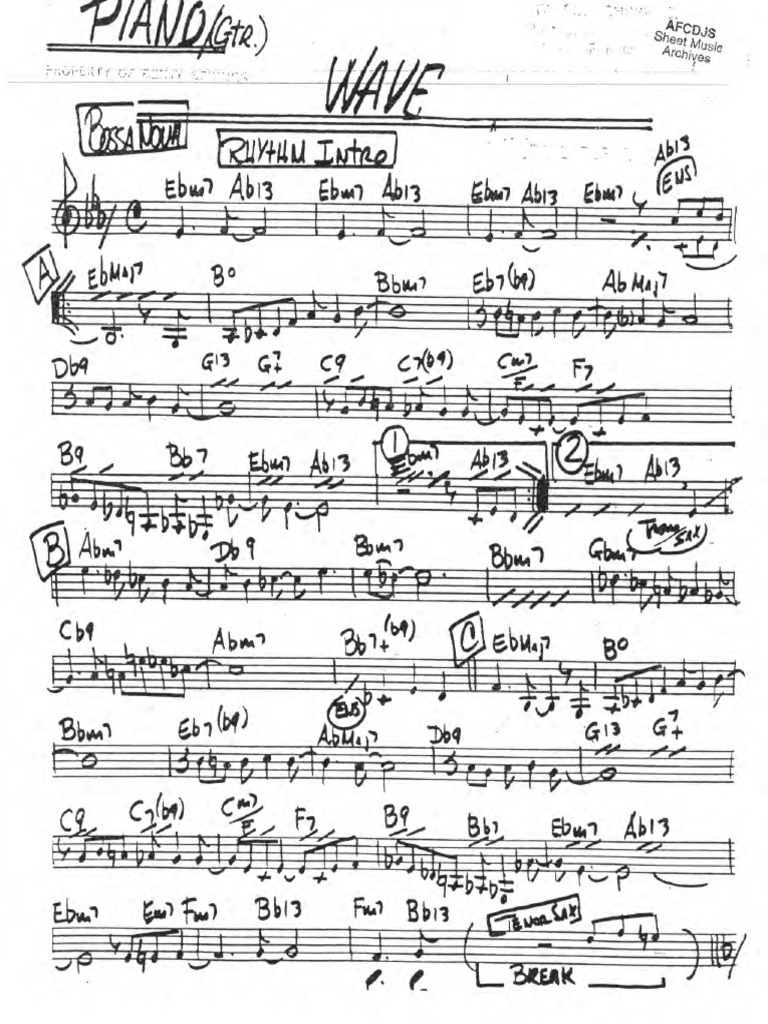 PIANO/(Gtr.)
AFCDJS
Sheet Music
Archives
PROPERTY OF
WAVE
BOSSA NOVA
RHYTHM INTRO
Ab13
ENS
Ebm7 Ab13 Ebm7 Ab13 Ebm7 Ab13 Ebm7
A
EbMaj7 B° Bbm7 Eb7(b9) AbMaj7
Db9 G13 G+7 C9 C7(b9) Cm7/F F7
B9 Bb7 Ebm7 Ab13 1 Ebm7 Ab13 2 Ebm7 Ab13
B
Abm7 Db9 Bbm7 Bbm7 Gbm7
Sax
Cb9 Abm7 Bb7+(b9) C EbMaj7 B°
ENS
Bbm7 Eb7(b9) AbMaj7 Db9 G13 G+7
C9 C7(b9) Cm7/F F7 B9 Bb7 Ebm7 Ab13
Ebm7 Em7 Fm7 Bb13 Fm7 Bb13 TENOR SAX
BREAK
D